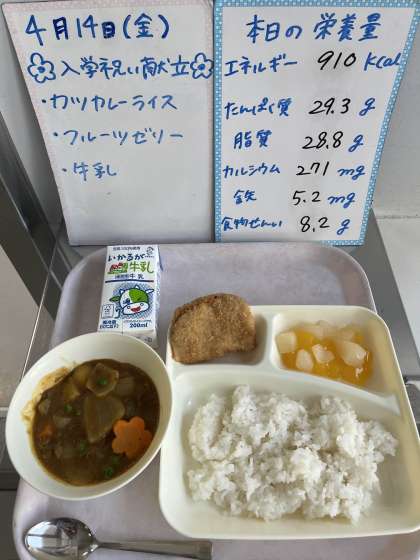 4月14日(金)
入学祝い献立
・カツカレーライス
・フルーツゼリー
・牛乳
本日の栄養量
エネルギー 910 Kcal
たんぱく質 29.3 g
脂質 28.8 g
カルシウム 271 mg
鉄 5.2 mg
食物せんい 8.2 g
いかるが
牛乳
200ml